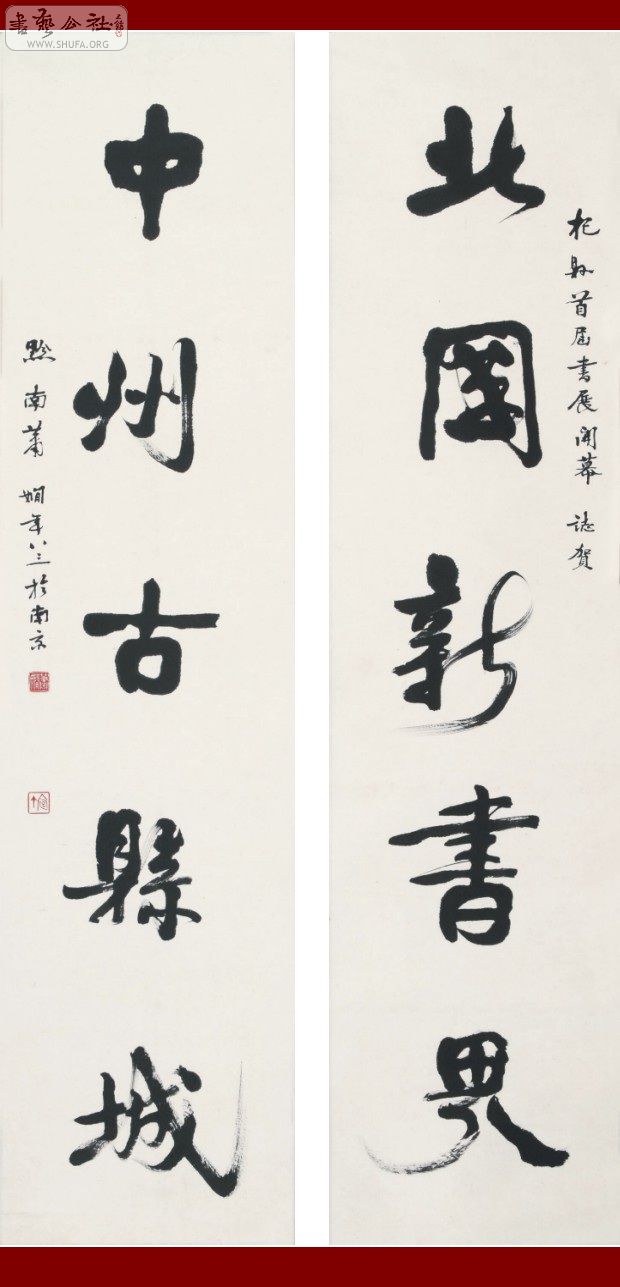 書藝公社
WWW.SHUFA.ORG
杞縣首届書展開幕 誌賀
北國新書界
中州古縣城
黔南蕭嫻年八三於南京